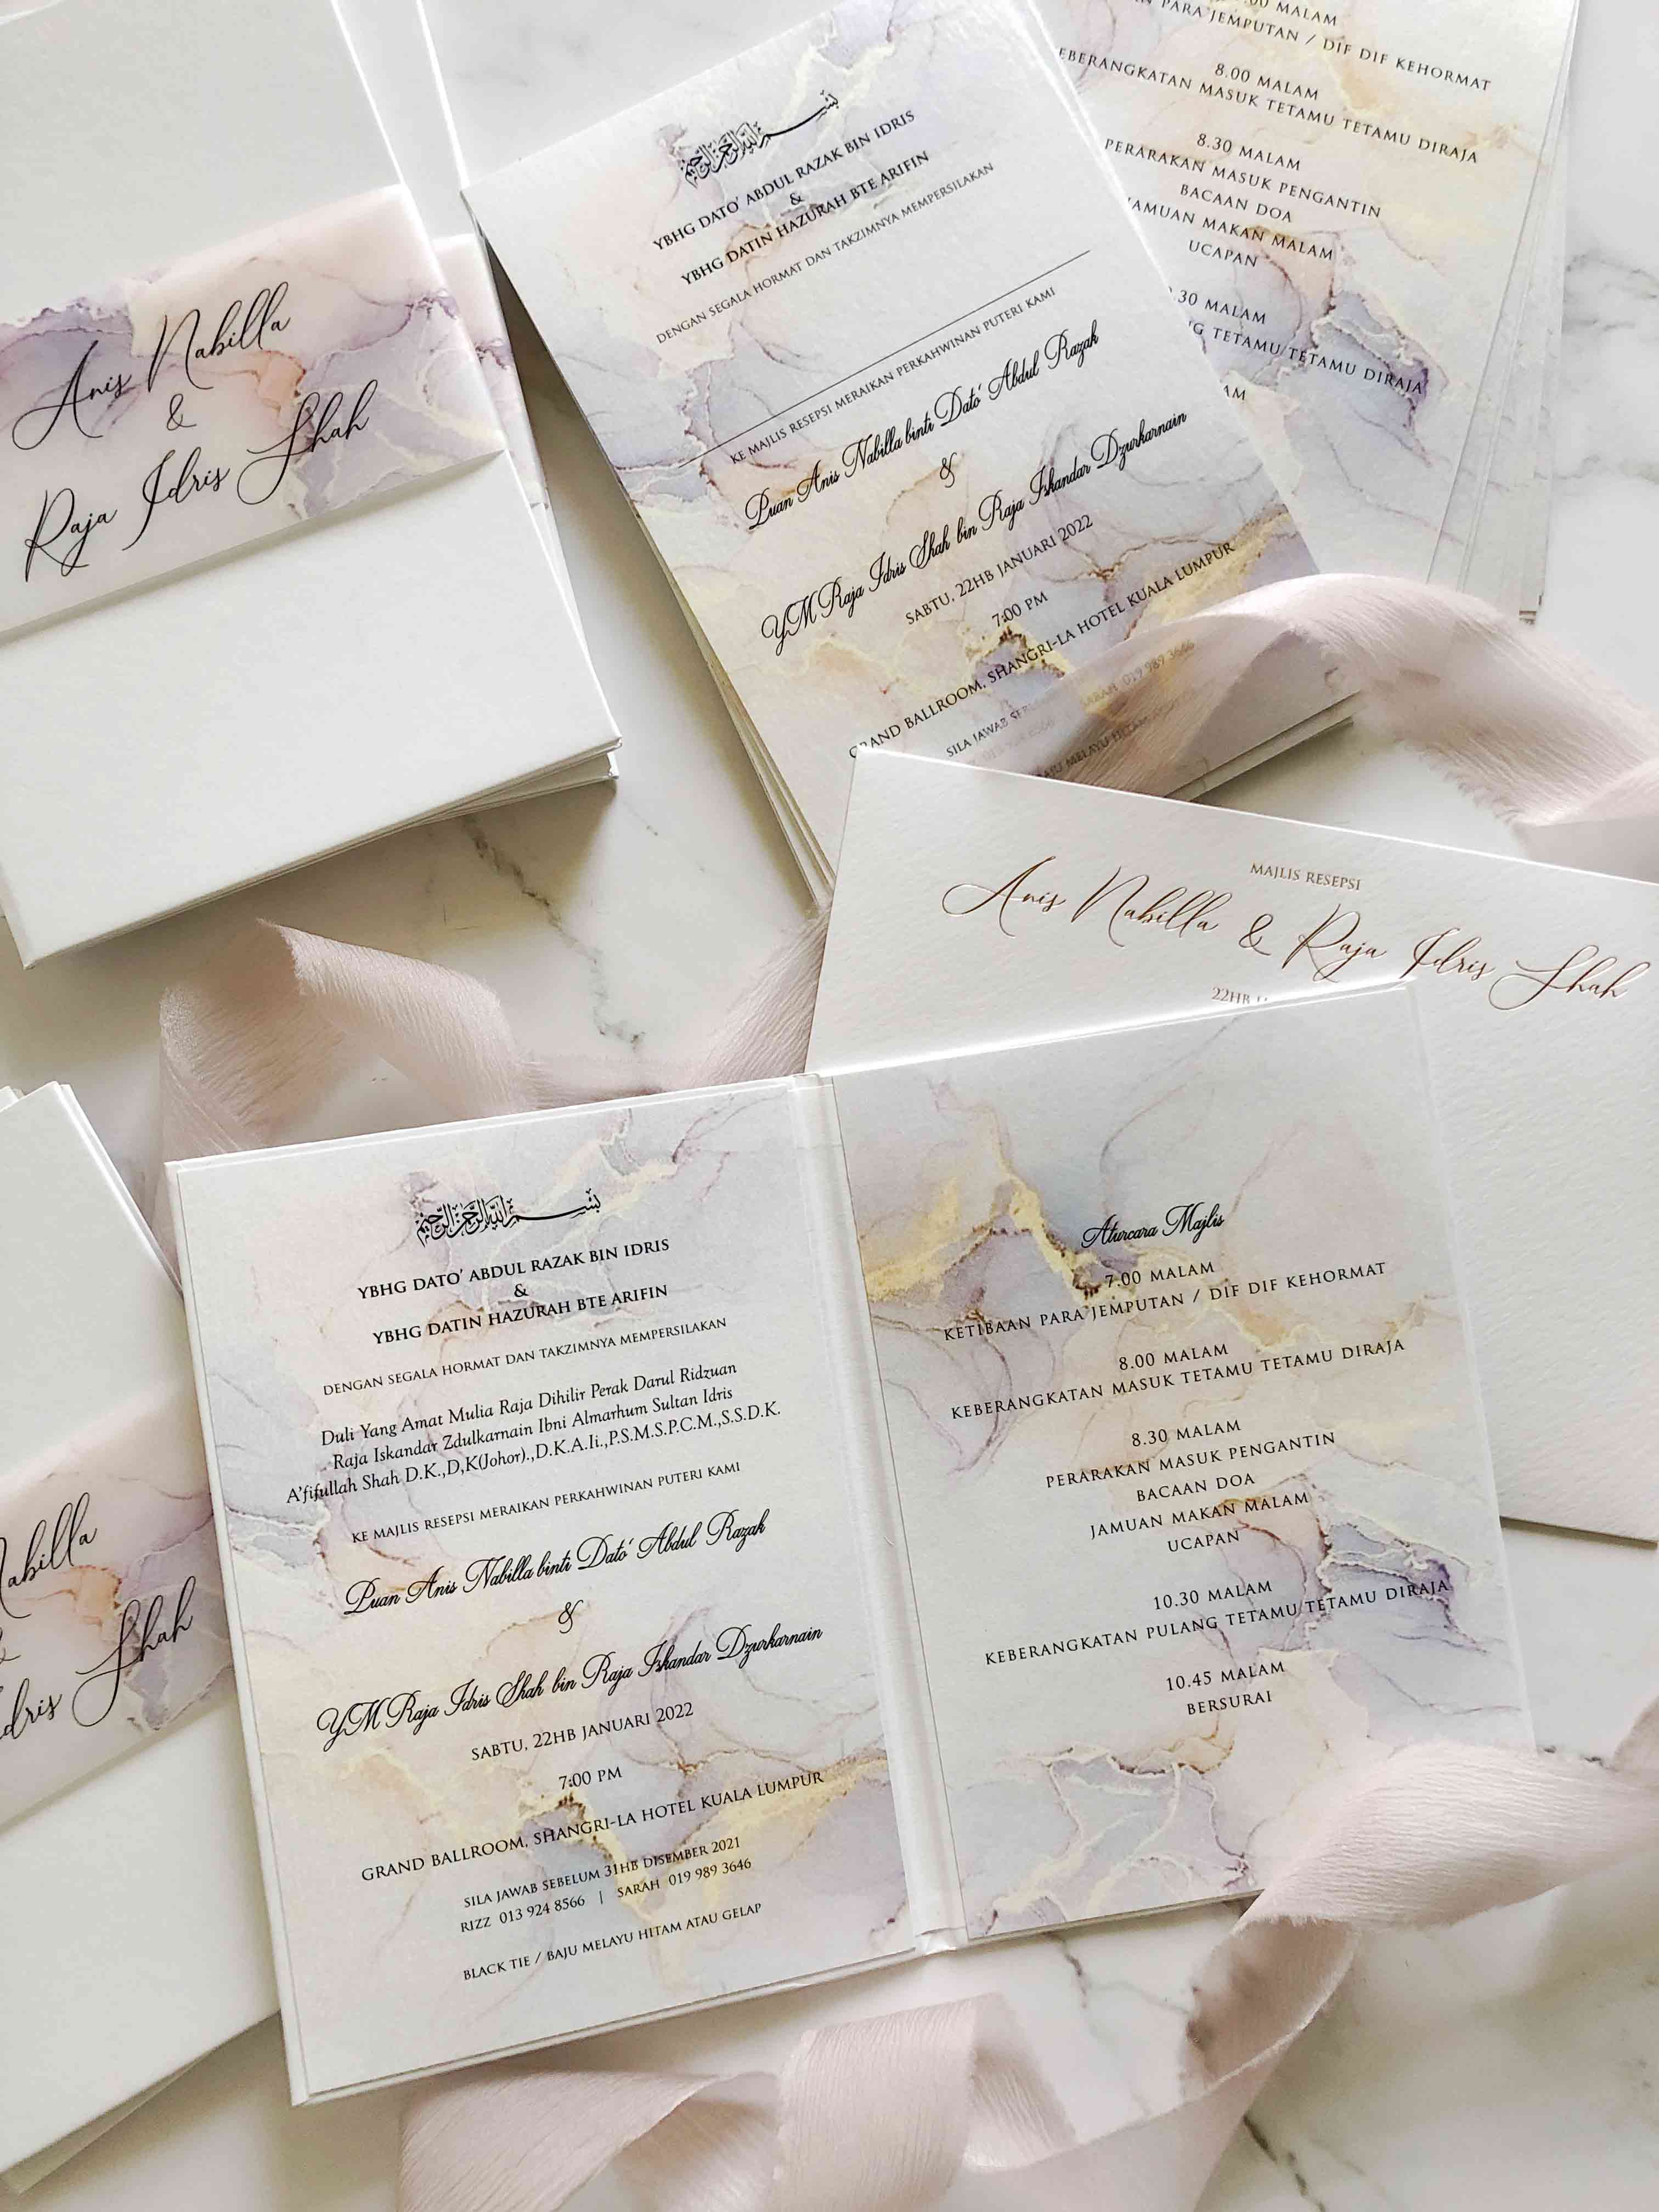 Anis Nabilla
&
Raja Idris Shah
بسم الله الرحمن الرحيم
YBHG DATO' ABDUL RAZAK BIN IDRIS
&
YBHG DATIN HAZURAH BTE ARIFIN
DENGAN SEGALA HORMAT DAN TAKZIMNYA MEMPERSILAKAN
KE MAJLIS RESEPSI MERAIKAN PERKAHWINAN PUTERI KAMI
Puan Anis Nabilla binti Dato' Abdul Razak
&
YM Raja Idris Shah bin Raja Iskandar Dzurkarnain
SABTU, 22HB JANUARI 2022
7:00 PM
GRAND BALLROOM, SHANGRI-LA HOTEL KUALA LUMPUR
SILA JAWAB
019 989 3646
BAJU MELAYU HITAM
MALAM
PARA JEMPUTAN / DIF DIF KEHORMAT
8.00 MALAM
KEBERANGKATAN MASUK TETAMU TETAMU DIRAJA
8.30 MALAM
PERARAKAN MASUK PENGANTIN
BACAAN DOA
JAMUAN MAKAN MALAM
UCAPAN
.30 MALAM
TETAMU/TETAMU DIRAJA
AM
MAJLIS RESEPSI
Anis Nabilla & Raja Idris Shah
22HB
بسم الله الرحمن الرحيم
YBHG DATO' ABDUL RAZAK BIN IDRIS
&
YBHG DATIN HAZURAH BTE ARIFIN
DENGAN SEGALA HORMAT DAN TAKZIMNYA MEMPERSILAKAN
Duli Yang Amat Mulia Raja Dihilir Perak Darul Ridzuan
Raja Iskandar Zdulkarnain Ibni Almarhum Sultan Idris
A'fifullah Shah D.K.,D,K(Johor).,D.K.A.Ii.,P.S.M.S.P.C.M.,S.S.D.K.
KE MAJLIS RESEPSI MERAIKAN PERKAHWINAN PUTERI KAMI
Puan Anis Nabilla binti Dato' Abdul Razak
&
YM Raja Idris Shah bin Raja Iskandar Dzurkarnain
SABTU, 22HB JANUARI 2022
7:00 PM
GRAND BALLROOM, SHANGRI-LA HOTEL KUALA LUMPUR
SILA JAWAB SEBELUM 31HB DISEMBER 2021
RIZZ 013 924 8566 | SARAH 019 989 3646
BLACK TIE / BAJU MELAYU HITAM ATAU GELAP
Aturcara Majlis
7.00 MALAM
KETIBAAN PARA JEMPUTAN / DIF DIF KEHORMAT
8.00 MALAM
KEBERANGKATAN MASUK TETAMU TETAMU DIRAJA
8.30 MALAM
PERARAKAN MASUK PENGANTIN
BACAAN DOA
JAMUAN MAKAN MALAM
UCAPAN
10.30 MALAM
KEBERANGKATAN PULANG TETAMU/TETAMU DIRAJA
10.45 MALAM
BERSURAI
abilla
&
dris Shah